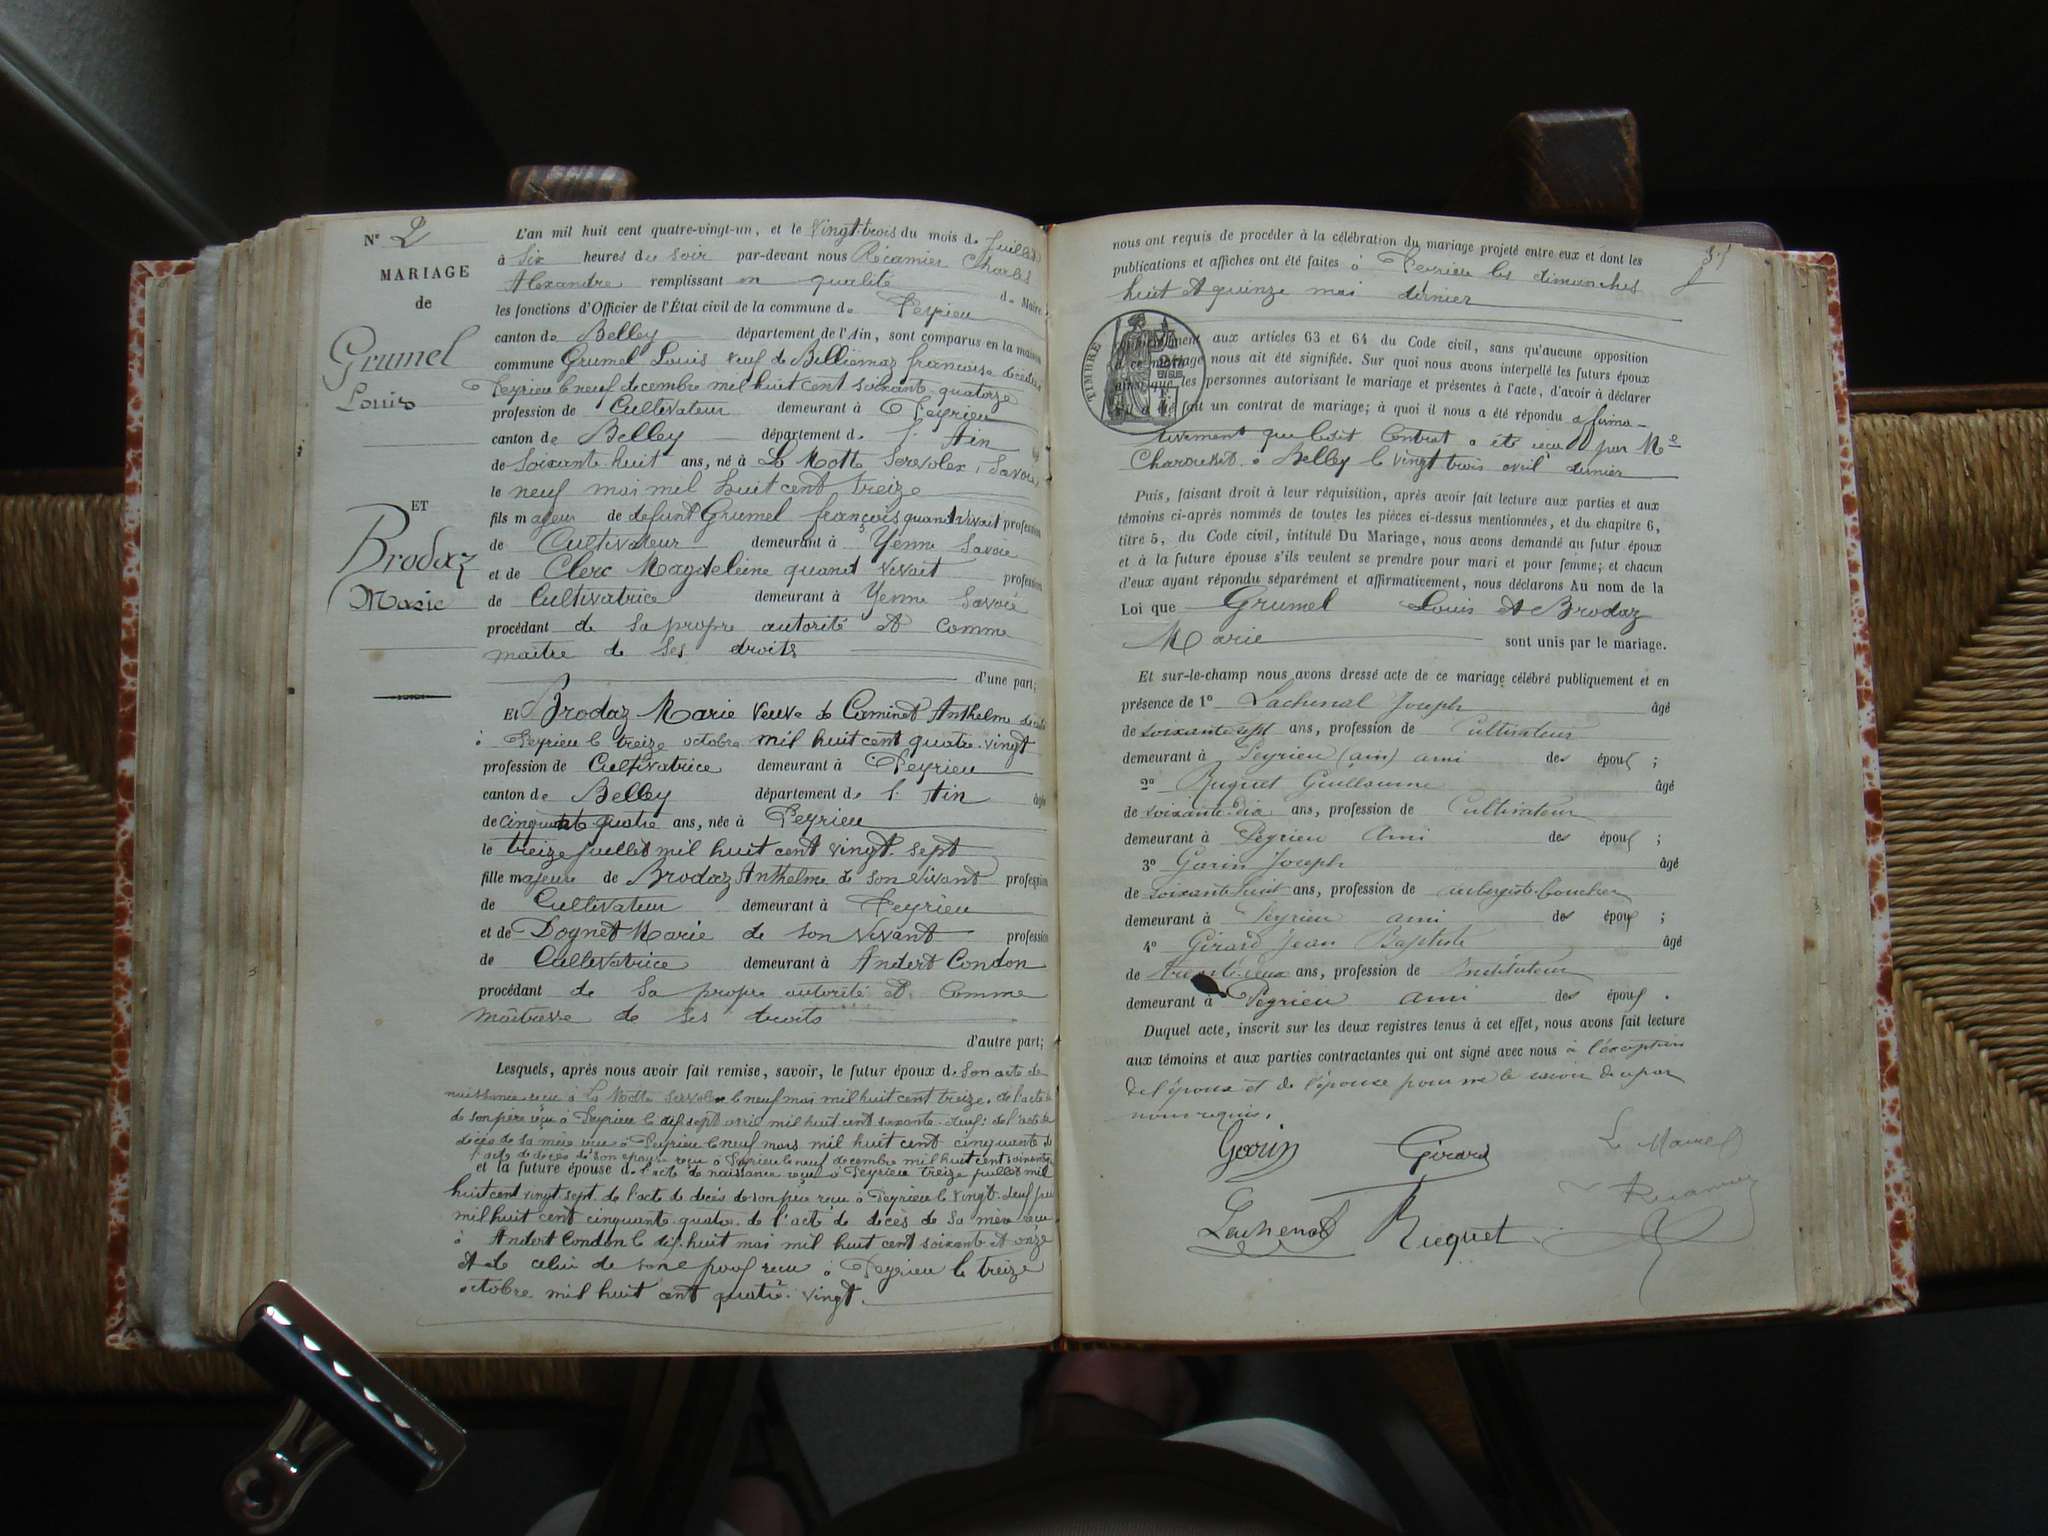 Nº 2
MARIAGE
de
Grumel
Louis
ET
Brodaz
Marie
L'an mil huit cent quatre-vingt-un, et le vingt-trois du mois de Juillet
à six heures du soir par-devant nous Récamier Charles
Alexandre remplissant en qualité de Maire
les fonctions d'Officier de l'État civil de la commune de Peyrieu
canton de Belley département de l'Ain, sont comparus en la maison
commune Grumel Louis veuf de Billiomaz francoise décédée
Peyrieu le neuf decembre mil huit cent soixante quatorze
profession de Cultivateur demeurant à Peyrieu
canton de Belley département de l'Ain
de soixante huit ans, né à La Motte Servolex, Savoie
le neuf mai mil huit cent treize
fils majeur de defunt Grumel françois quand vivait profession
de Cultivateur demeurant à Yenne Savoie
et de Clerc Magdeleine quand vivait profession
de Cultivatrice demeurant à Yenne Savoie
procédant de sa propre autorité et comme
maître de ses droits
d'une part;
Et Brodaz Marie veuve de Caminet Anthelme décédé
à Peyrieu le treize octobre mil huit cent quatre-vingt
profession de Cultivatrice demeurant à Peyrieu
canton de Belley département de l'Ain âgée
de cinquante quatre ans, née à Peyrieu
le treize juillet mil huit cent vingt sept
fille majeure de Brodaz Anthelme de son vivant profession
de Cultivateur demeurant à Peyrieu
et de Dognet Marie de son vivant profession
de Cultivatrice demeurant à Andert Condon
procédant de sa propre autorité et comme
maîtresse de ses droits
d'autre part;
Lesquels, après nous avoir fait remise, savoir, le futur époux de son acte de
naissance reçu à La Motte Servolex le neuf mai mil huit cent treize, de l'acte de
de son père reçu à Peyrieu le dix sept avril mil huit cent soixante-neuf; de l'acte de
décès de sa mère reçu à Peyrieu le neuf mars mil huit cent cinquante de
l'acte de décès de son épouse reçu à Peyrieu le neuf decembre mil huit cent soixante
et la future épouse de l'acte de naissance reçu à Peyrieu treize juillet mil
huit cent vingt sept, de l'acte de décès de son père reçu à Peyrieu le vingt-neuf
mil huit cent cinquante-quatre, de l'acte de décès de sa mère reçu
à Andert Condon le dix-huit mai mil huit cent soixante et onze
et de celui de son époux reçu à Peyrieu le treize
octobre mil huit cent quatre-vingt.
nous ont requis de procéder à la célébration du mariage projeté entre eux et dont les
publications et affiches ont été faites à Peyrieu les dimanches
huit et quinze mai dernier
TIMBRE
aux articles 63 et 64 du Code civil, sans qu'aucune opposition
à ce mariage nous ait été signifiée. Sur quoi nous avons interpellé les futurs époux
ainsi que les personnes autorisant le mariage et présentes à l'acte, d'avoir à déclarer
s'il a été fait un contrat de mariage; à quoi il nous a été répondu affirma-
tivement que ledit Contrat a été reçu par Me
à Belley le vingt trois avril dernier
Puis, faisant droit à leur réquisition, après avoir fait lecture aux parties et aux
témoins ci-après nommés de toutes les pièces ci-dessus mentionnées, et du chapitre 6,
titre 5, du Code civil, intitulé Du Mariage, nous avons demandé au futur époux
et à la future épouse s'ils veulent se prendre pour mari et pour femme; et chacun
d'eux ayant répondu séparément et affirmativement, nous déclarons Au nom de la
Loi que Grumel Louis et Brodaz
Marie sont unis par le mariage.
Et sur-le-champ nous avons dressé acte de ce mariage célébré publiquement et en
présence de 1º Lachenal Joseph âgé
de soixante sept ans, profession de Cultivateur
demeurant à Peyrieu (ain) ami des époux ;
2º Ruquet Guillaume âgé
de soixante-dix ans, profession de Cultivateur
demeurant à Peyrieu Ami des époux ;
3º Garin Joseph âgé
de soixante huit ans, profession de aubergiste-boucher
demeurant à Peyrieu ami des époux ;
4º Girard Jean Baptiste âgé
de trente-deux ans, profession de Instituteur
demeurant à Peyrieu ami des époux .
Duquel acte, inscrit sur les deux registres tenus à cet effet, nous avons fait lecture
aux témoins et aux parties contractantes qui ont signé avec nous à l'exception
de l'époux et de l'épouse pour ne le savoir de ce par
nous requis.
Garin Girard Le Maire
Lachenal Ruquet Récamier